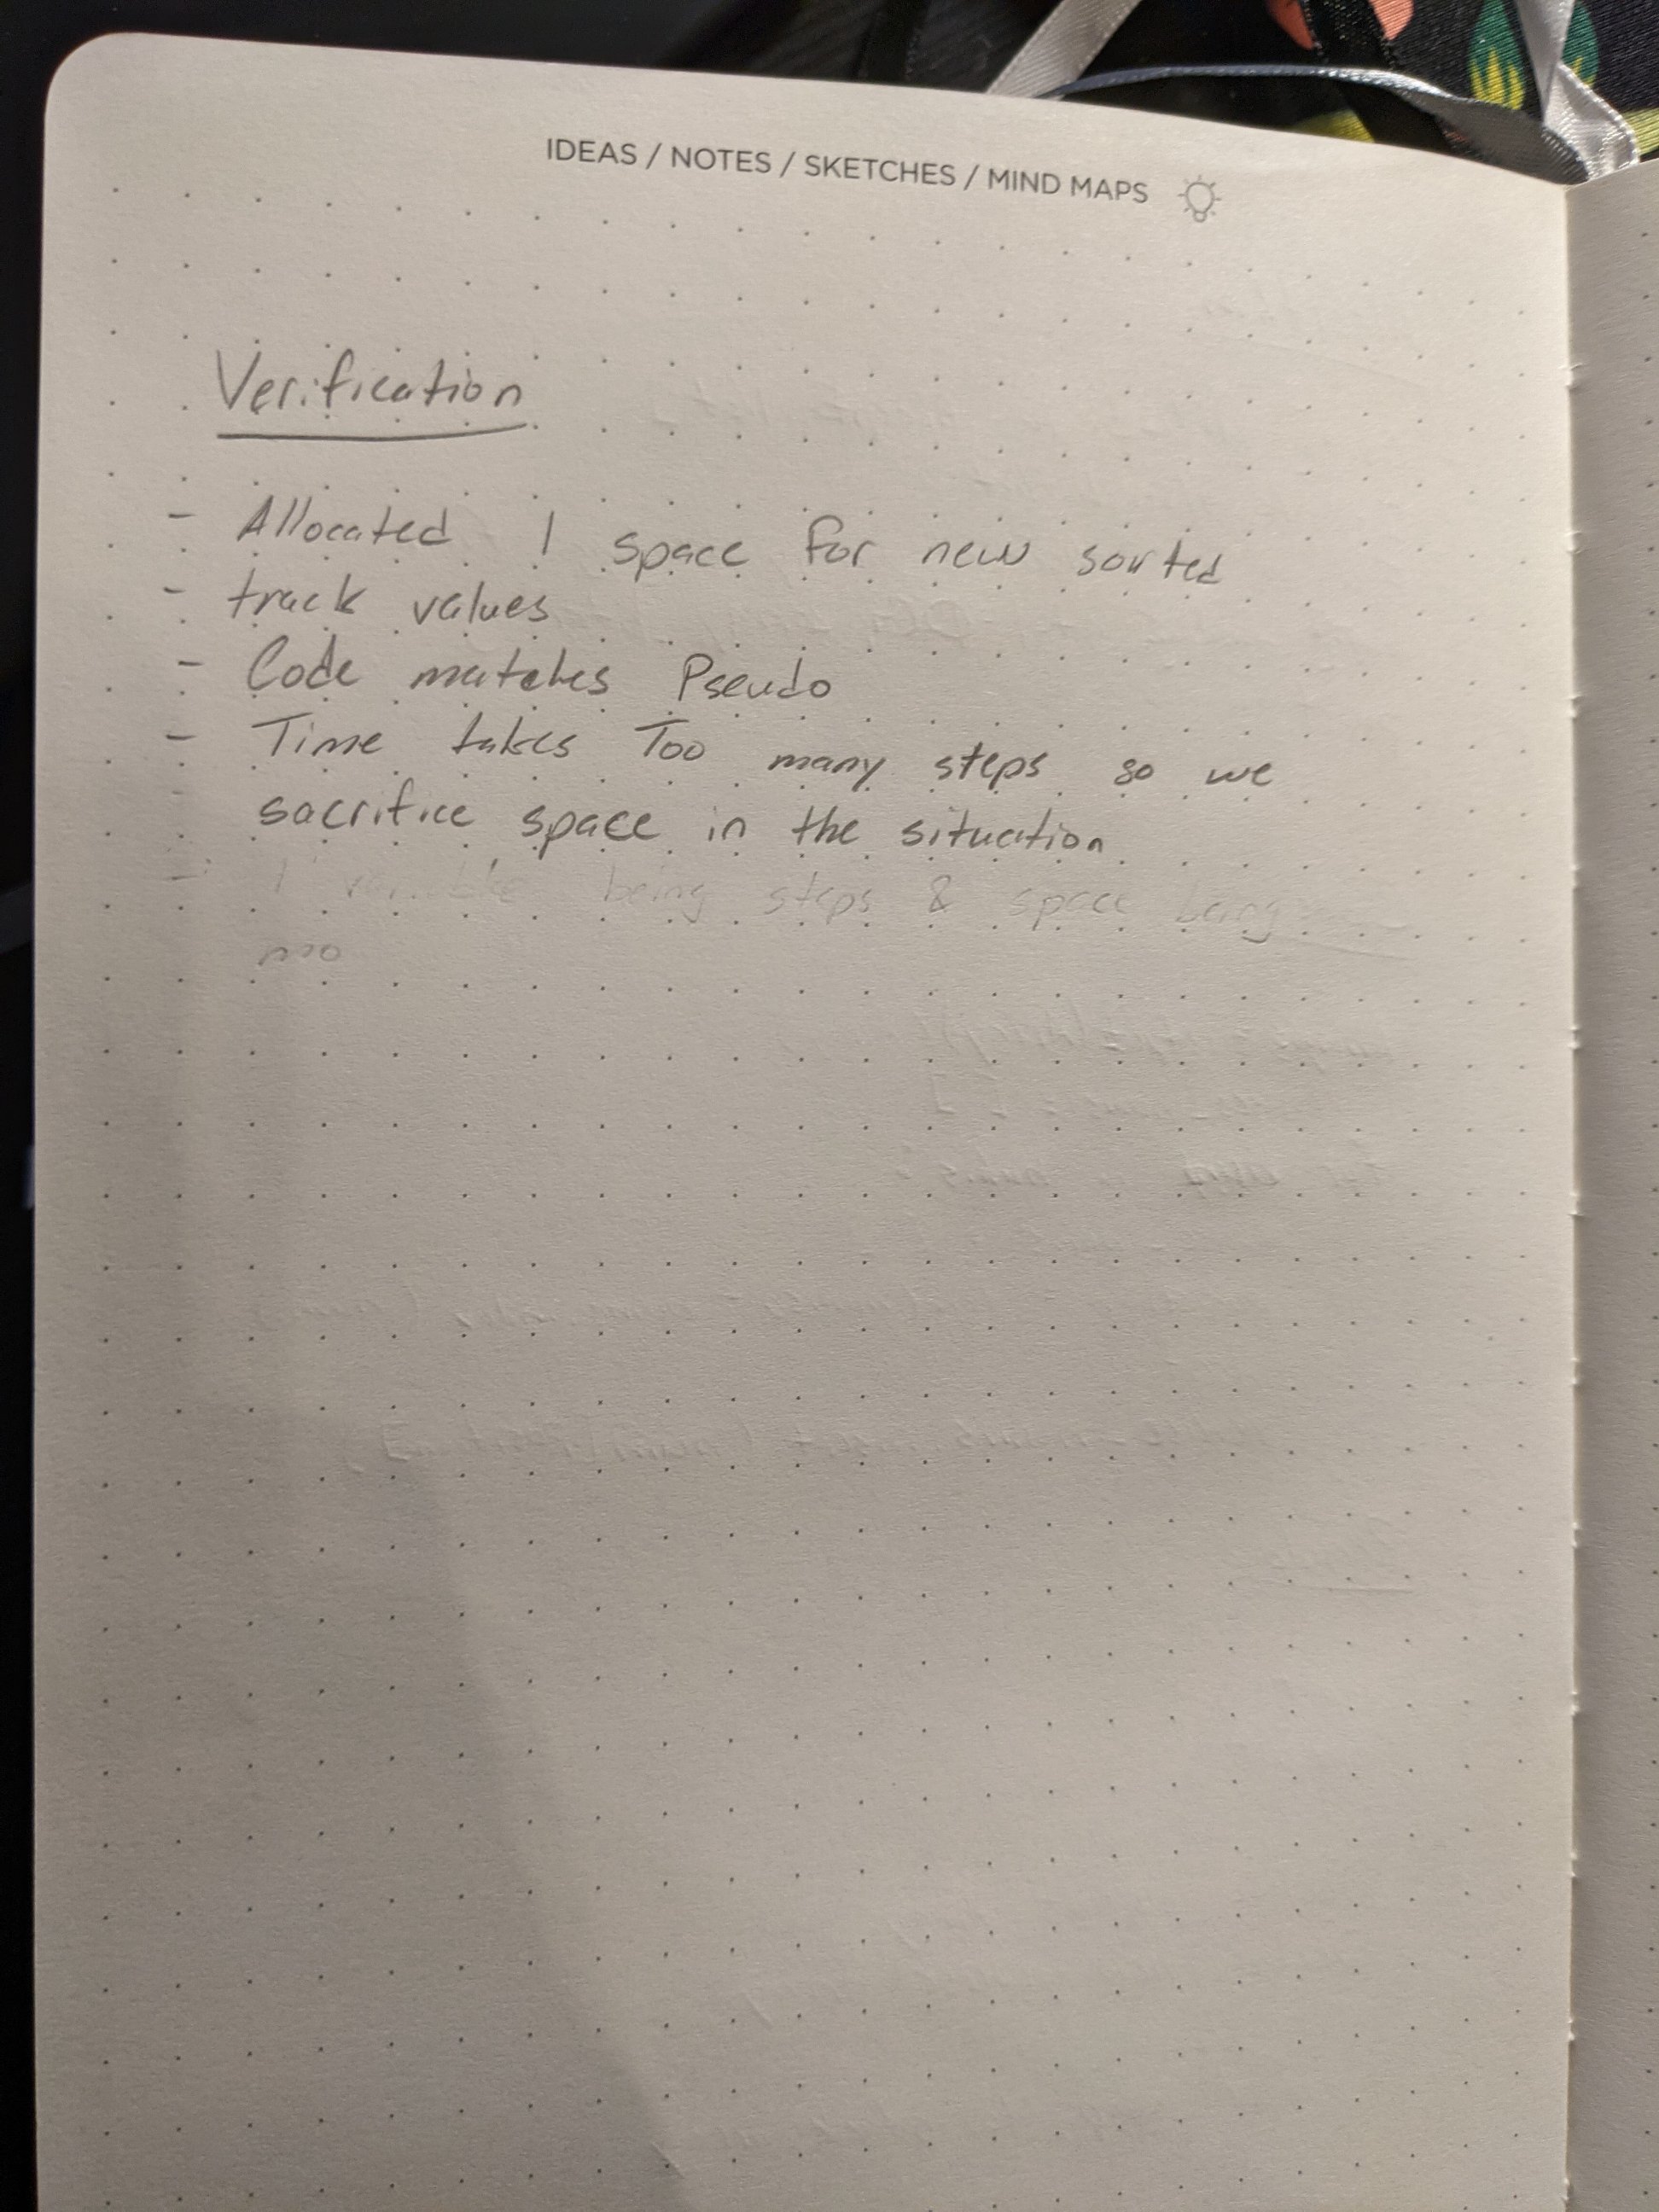 IDEAS / NOTES / SKETCHES / MIND MAPS
Verification
- Allocated 1 space for new sorted
- track values
- Code matches Pseudo
- Time takes Too many steps so we
sacrifice space in the situation
- 1 variable being steps & space being